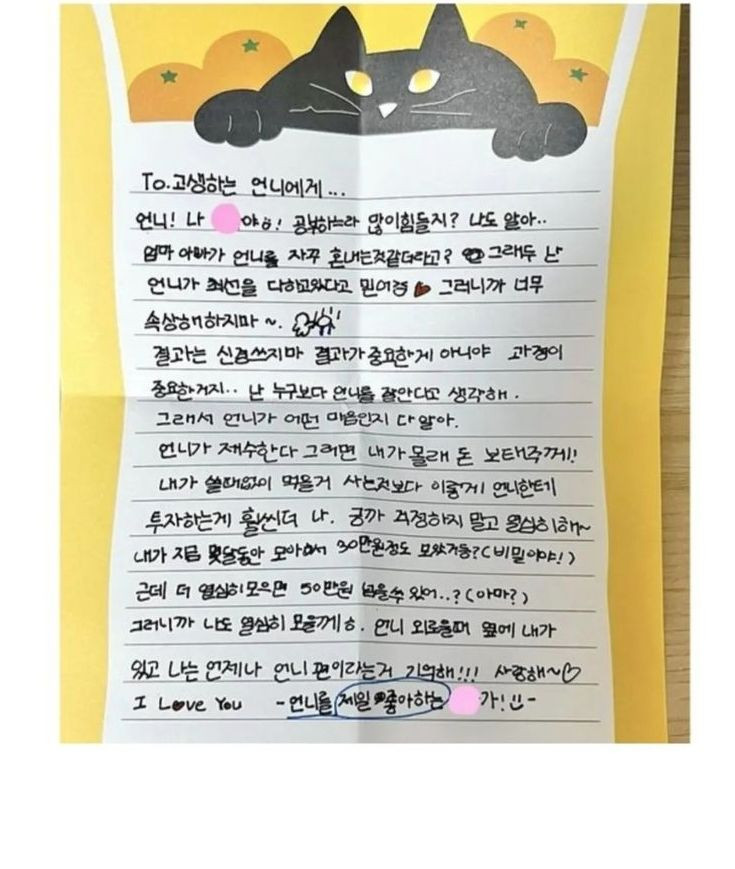 To.고생하는 언니에게...
언니! 나 야ㅎ! 공부하느라 많이힘들지? 나도 알아..
엄마 아빠가 언니를 자꾸 혼내는것같더라고? 그래두 난
언니가 최선을 다하고있다고 믿어경 그러니까 너무
속상해하지마~.
결과는 신경쓰지마 결과가 중요한게 아니야 과정이
중요한거지.. 난 누구보다 언니를 잘안다고 생각해.
그래서 언니가 어떤 마음인지 다 알아.
언니가 재수한다 그러면 내가 몰래 돈 보태주께!!
내가 쓸때없이 먹을거 사는것보다 이렇게 언니한테
투자하는게 훨씬더 나. 긍까 걱정하지 말고 열심히해~
내가 지금 몇달동안 모아서 30만원정도 모았거둥?(비밀이야!)
근데 더 열심히모으면 50만원 넘을수 있어..?(아마?)
그러니까 나도 열심히 모을께ㅎ. 언니 외로울때 옆에 내가
있고 나는 언제나 언니 편이라는거 기억해!!! 사랑해~♡
I Love You -언니를 제일 좋아하는 가!-